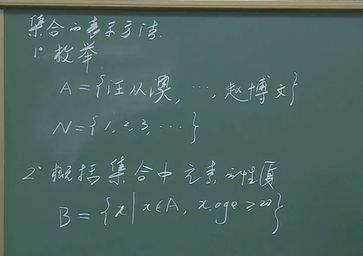 集合的表示方法.
1° 枚举
A = {汪从澳, ⋯, 赵博文}
N = {1, 2, 3, ⋯}
2° 概括集合中元素的性质
B = {x | x∈A, x.age ≥ 20}